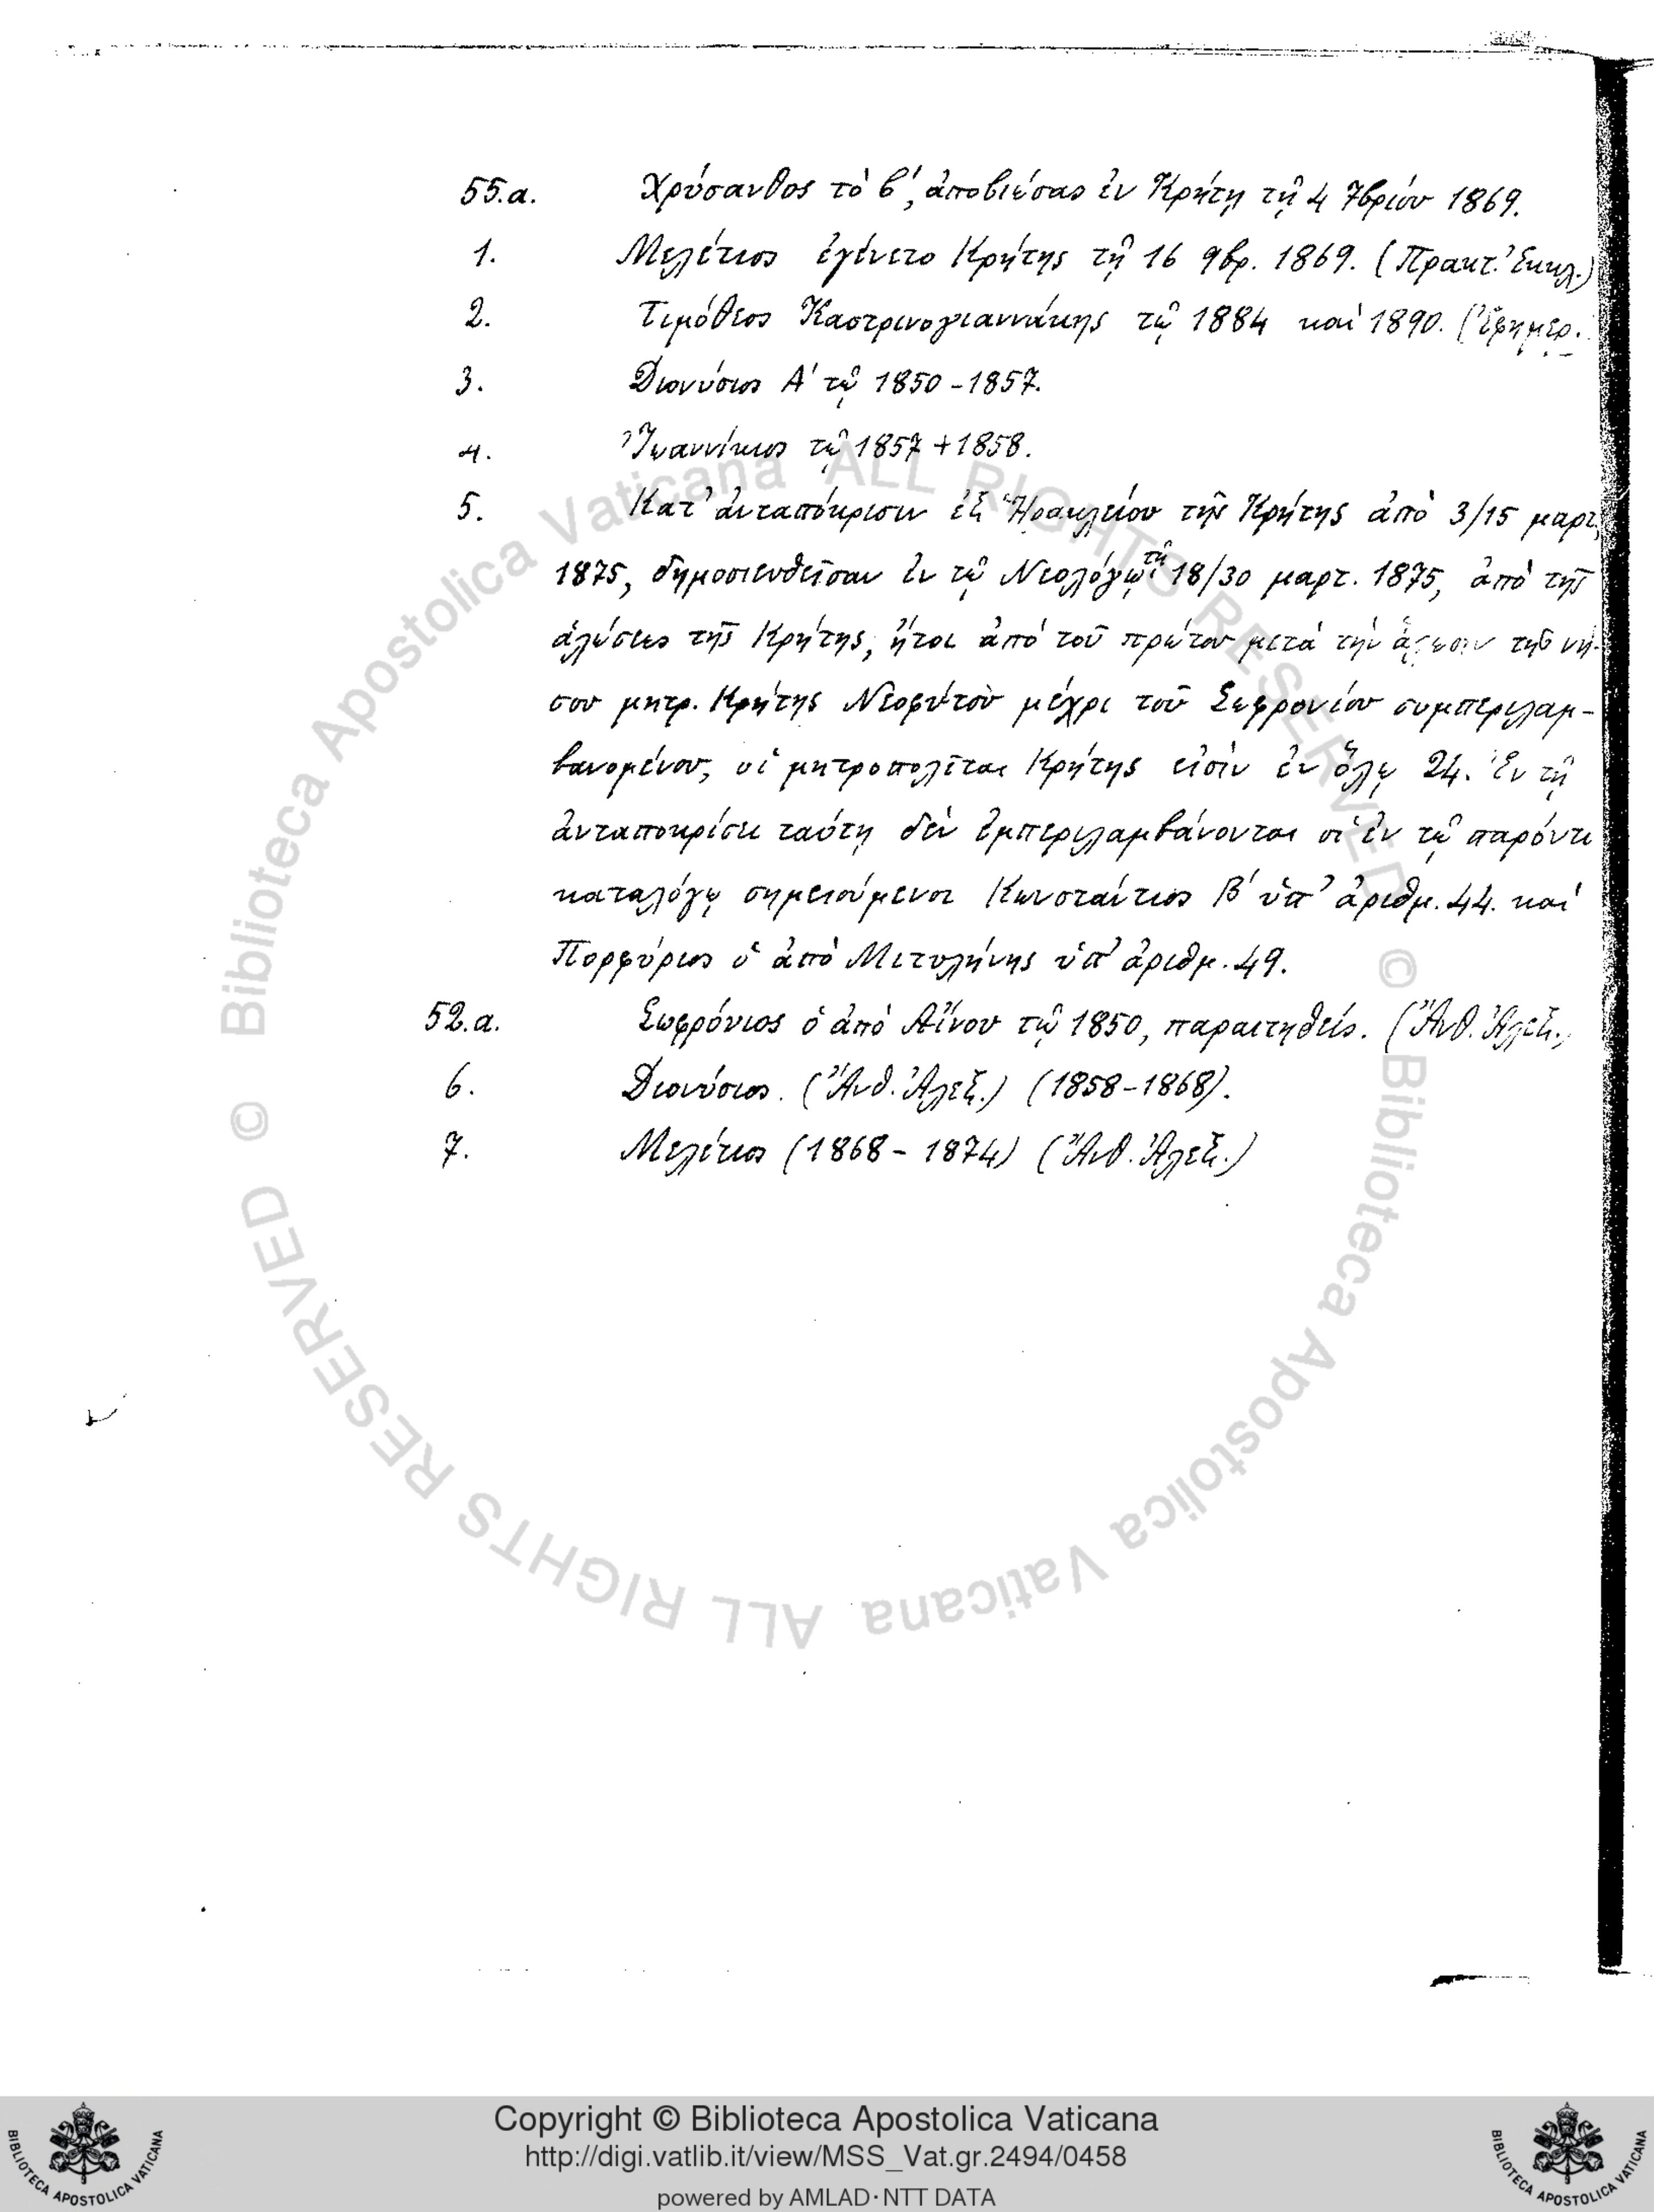 55.α. Χρύσανθος τὸ β', ἀποβιώσας ἐν Κρήτῃ τῇ 4 7βρίου 1869.
1. Μελέτιος ἐγένετο Κρήτης τῇ 16 9βρ. 1869. (Πρακτ. Ἐκκλ.)
2. Τιμόθεος Καστρινογιαννάκης τῷ 1884 καὶ 1890. (Ἐφημερ.
3. Διονύσιος Α' τῷ 1850-1857.
4. Ἰωαννίκιος τῷ 1857 + 1858.
5. Κατ' ἀνταπόκρισιν ἐξ Ἡρακλείου τῆς Κρήτης ἀπὸ 3/15 μαρτ.
1875, δημοσιευθεῖσαν ἐν τῷ Νεολόγῳ τῇ 18/30 μαρτ. 1875, ἀπὸ τῆς
ἁλώσεως τῆς Κρήτης, ἤτοι ἀπὸ τοῦ πρώτου μετὰ τὴν ἅλωσιν τῆς νή-
σου μητρ. Κρήτης Νεοφύτου μέχρι τοῦ Σωφρονίου συμπεριλαμ-
βανομένου, οἱ μητροπολῖται Κρήτης εἰσὶν ἐν ὅλῳ 24. Ἐν τῇ
ἀνταποκρίσει ταύτῃ δὲν ἐμπεριλαμβάνονται οἱ ἐν τῷ παρόντι
καταλόγῳ σημειούμενοι Κωνστάντιος Β' ὑπ' ἀριθμ. 44. καὶ
Πορφύριος ὁ ἀπὸ Μιτυλήνης ὑπ' ἀριθμ. 49.
52.α. Σωφρόνιος ὁ ἀπὸ Αἴνου τῷ 1850, παραιτηθείς. (Ἄνθ. Ἀλεξ.)
6. Διονύσιος. (Ἄνθ. Ἀλεξ.) (1858-1868).
7. Μελέτιος (1868-1874) (Ἄνθ. Ἀλεξ.)
© Biblioteca Apostolica Vaticana ALL RIGHTS RESERVED
© Biblioteca Apostolica Vaticana ALL RIGHTS RESERVED
Copyright © Biblioteca Apostolica Vaticana
http://digi.vatlib.it/view/MSS_Vat.gr.2494/0458
powered by AMLAD·NTT DATA
BIBLIOTECA APOSTOLICA VATICANA
BIBLIOTECA APOSTOLICA VATICANA